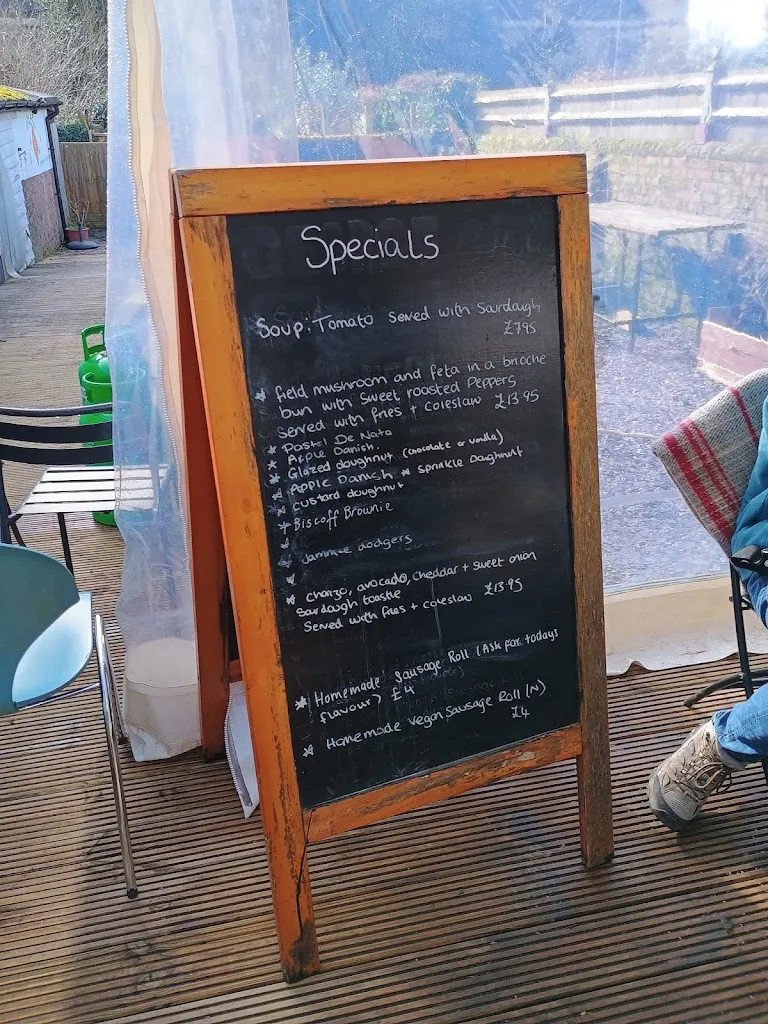 Specials
Soup: Tomato Served with Sardaugh
£795
* field mushroom and feta in a brioche
bun with sweet roasted Peppers
served with fries + Coleslaw £13.95
* Pastel De Nata
* Apple Danish.
* Glazed doughnut (chocolate or vanilla)
* Apple Danish * Sprinkle Doughnut
* Custard doughnut
* Biscoff Brownie
* Jammie dodgers
* Chorizo, avocado, cheddar + sweet onion
Sardough toastie
Served with fries + coleslaw £13.95
* Homemade Sausage Roll (Ask for todays
flavour) £4
* Homemade vegan Sausage Roll (N)
£4